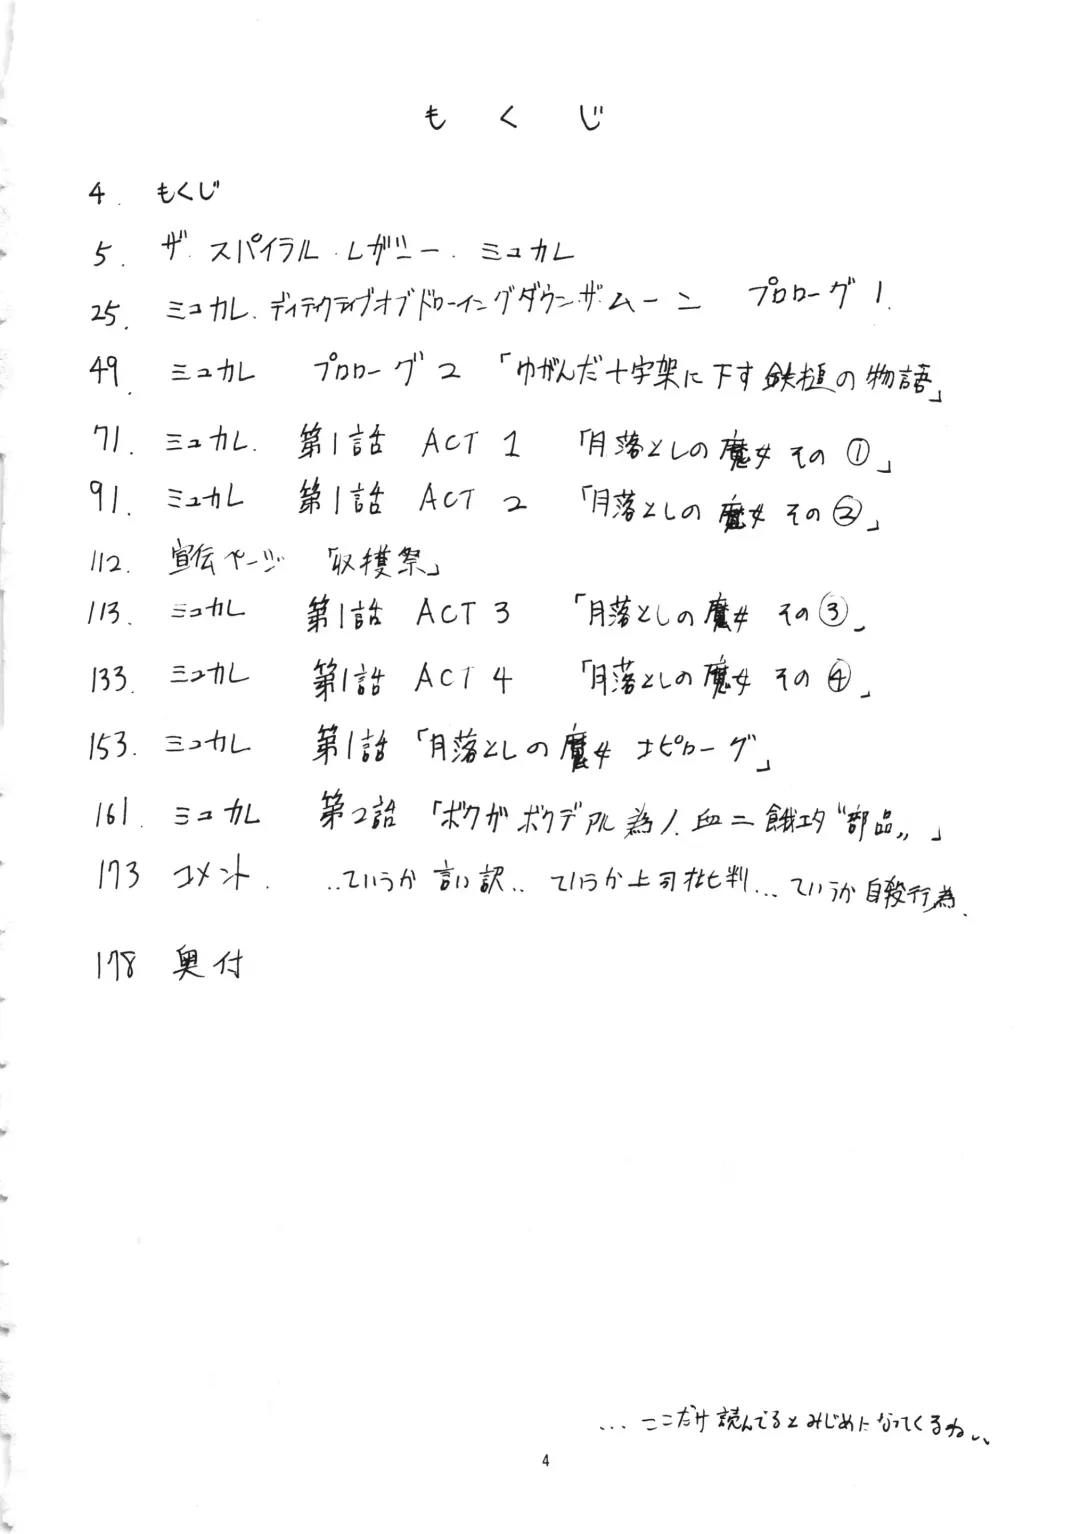 もくじ
4. もくじ
5. ザ・スパイラル・レガシー・ミュカレ
25. ミュカレ・ディテクティブオブドローイングダウン・ザ・ムーン プロローグ1.
49. ミュカレ プロローグ2 「ゆがんだ十字架に下す鉄槌の物語」
71. ミュカレ. 第1話 ACT 1 「月落としの魔女 その①」
91. ミュカレ 第1話 ACT 2 「月落としの魔女 その②」
112. 宣伝ページ 「収穫祭」
113. ミュカレ 第1話 ACT 3 「月落としの魔女 その③」
133. ミュカレ 第1話 ACT 4 「月落としの魔女 その④」
153. ミュカレ 第1話「月落としの魔女 エピローグ」
161. ミュカレ 第2話 「ボクガボクデアル為ノ血ニ餓エタ“部品”」
173 コメント. ..ていうか言い訳.. ていうか上司批判... ていうか自殺行為.
178 奥付
...ここだけ読んでるとみじめになってくるね..
4